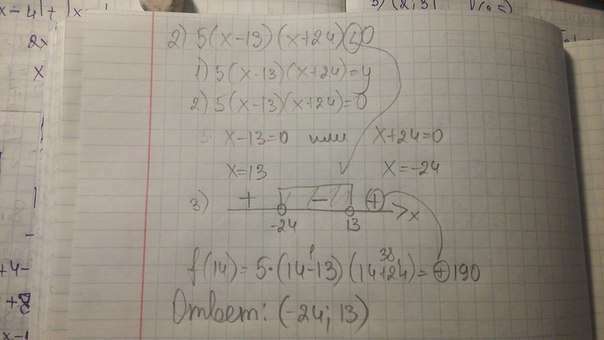 2) 5(x-13)(x+24)<0
1) 5(x-13)(x+24)=y
2) 5(x-13)(x+24)=0
x-13=0 или x+24=0
x=13 x=-24
3) + - +
-24 13 x
1 38
f(14)=5·(14-13)(14+24)=+190
Ответ: (-24; 13)